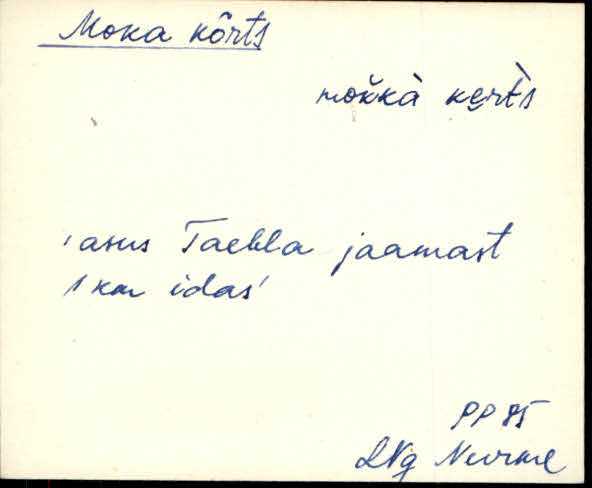 Moka kõrts
mok̆kà ke̮rt̀s
'asus Taebla jaamast
1 km idas'
PP 85
LNg Nurme